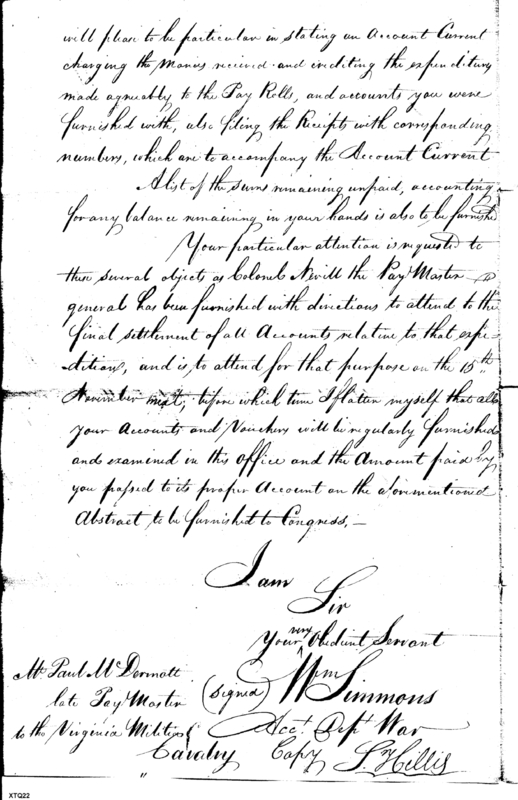 will please to be particular in stating an Account Current
charging the monies recieved and crediting the expenditures
made agreeably to the Pay Rolls, and accounts you were
furnished with, also filing the Receipts with corresponding
numbers, which are to accompany the Account Current
A list of the sums remaining unpaid, accounting
for any balance remaining in your hands is also to be furnished
Your particular attention is requested to
these several objects as Colonel Nevill the Pay Master
general has been furnished with directions to attend to the
final settlement of all Accounts relative to that expe-
-dition, and is to attend for that purpose on the 15th
November next, before which time I flatter myself that all
your Accounts and Vouchers will be regularly furnished
and examined in this Office and the Amount paid by
you passed to its proper Account on the aforementioned
Abstract to be furnished to Congress,—
I am
Sir
Your very Obedient Servant
(signed) Wm Simmons
Acct. Dept War
Mr Paul McDermott
late Pay Master
to the Virginia Militia
Cavalry
Copy
Hillis
XTQ22